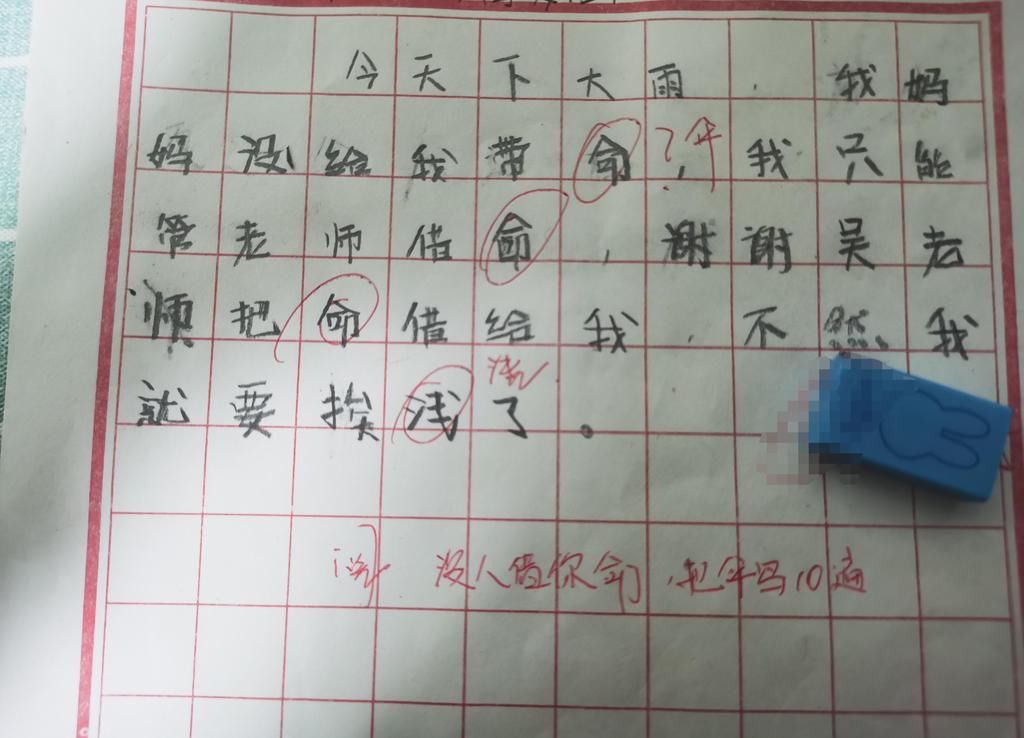 今天下大雨，我妈
妈没给我带命？伞，我只能
管老师借命，谢谢吴老
师把命借给我，不然我
浇
就要挨浅了。
没人借你命，把伞写10遍